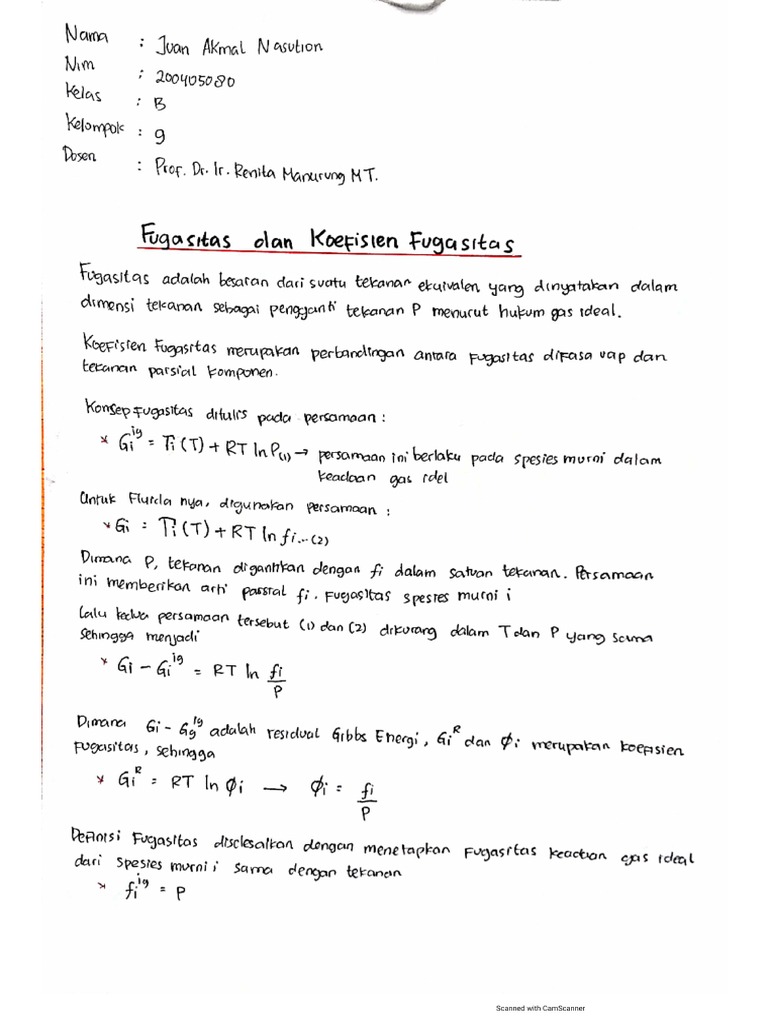 Nama : Juan Akmal Nasution
Nim : 200405080
Kelas : B
Kelompok : 9
Dosen : Prof. Dr. Ir. Renita Manurung MT.
Fugasitas dan Koefisien Fugasitas
Fugasitas adalah besaran dari suatu tekanan ekuivalen yang dinyatakan dalam
dimensi tekanan sebagai pengganti tekanan P menurut hukum gas ideal.
Koefisien Fugasitas merupakan perbandingan antara fugasitas difasa uap dan
tekanan parsial komponen.
Konsep fugasitas ditulis pada persamaan :
* Gi^ig = Ti (T) + RT ln P(1) → persamaan ini berlaku pada spesies murni dalam
keadaan gas idel
Untuk Fluida nya, digunakan persamaan :
* Gi = Ti (T) + RT ln fi...(2)
Dimana P, tekanan digantikan dengan fi dalam satuan tekanan. Persamaan
ini memberikan arti parsial fi. Fugasitas spesies murni i
Lalu kedua persamaan tersebut (1) dan (2) dikurang dalam T dan P yang sama
sehingga menjadi
* Gi - Gi^ig = RT ln fi/P
Dimana Gi - Gg^ig adalah residual Gibbs Energi, Gi^R dan ϕi merupakan koefisien
Fugasitas, sehingga
* Gi^R = RT ln ϕi → ϕi = fi/P
Definisi Fugasitas diselesaikan dengan menetapkan Fugasitas keadaan gas ideal
dari spesies murni i sama dengan tekanan
* fi^ig = P
Scanned with CamScanner